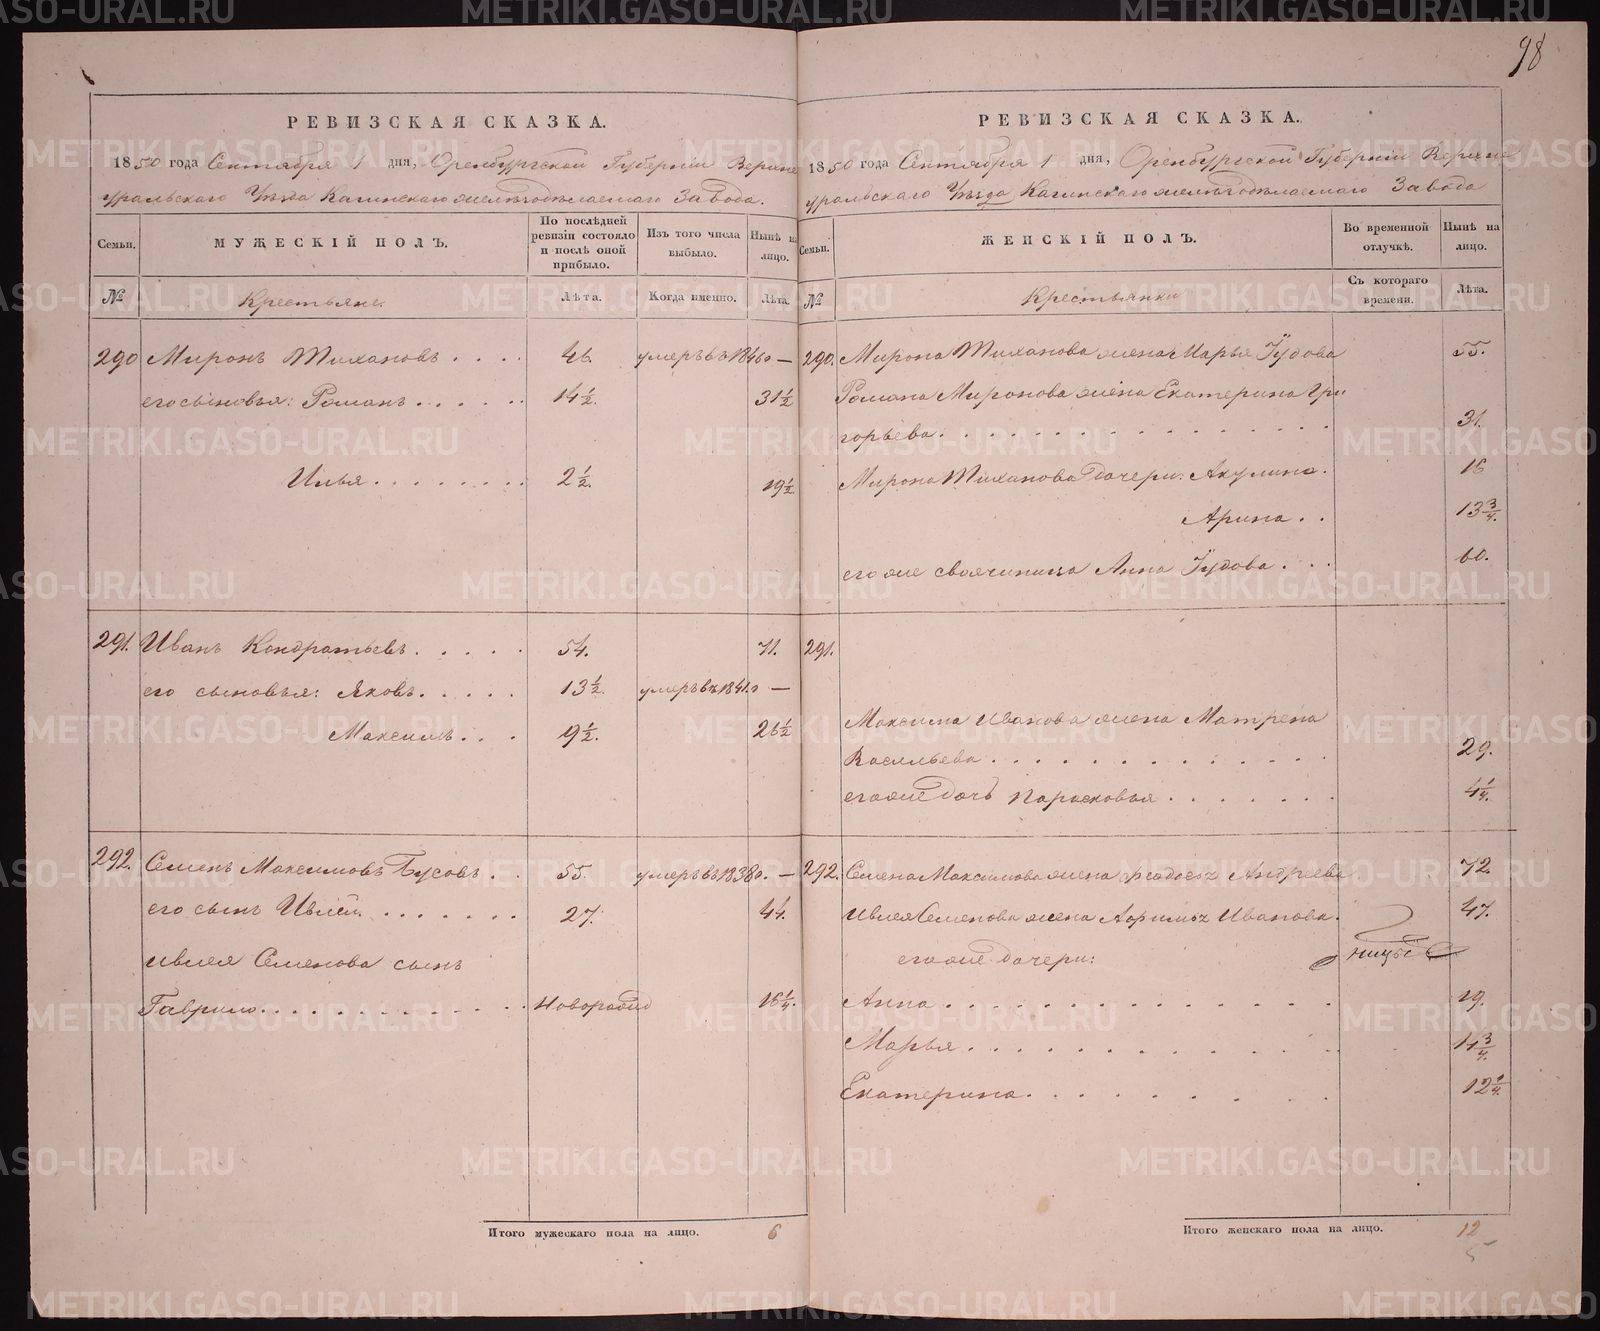 98
РЕВИЗСКАЯ СКАЗКА.
1850 года Сентября 1 дня, Оренбургской Губерніи Верхне
уральскаго Уѣзда Кагинскаго желѣзодѣлаемаго Завода.
Семьи.
МУЖЕСКІЙ ПОЛЪ.
По послѣдней ревизіи состояло и послѣ оной прибыло.
Изъ того числа выбыло.
Нынѣ на лицо.
№
Крестьяне.
Лѣта.
Когда именно.
Лѣта.
290 Миронъ Тихановъ . . . . 46. умеръ въ 1846 —
его сыновья: Романъ . . . . . 14½. 31½
Илья . . . . . . . . 2½. 19½
291. Иванъ Кондратьевъ . . . . . 54. 71.
его сыновья: Яковъ . . . . . 13½. умеръ въ 1841 —
Максимъ . . . 9½. 26½
292. Семенъ Максимовъ Бусовъ . . 55. умеръ въ 1838 —
его сынъ Ивлей . . . . . . . 27. 44.
Ивлея Семенова сынъ
Гаврило . . . . . . . . . . . . новорожд 16¼.
Итого мужескаго пола на лицо. 6
РЕВИЗСКАЯ СКАЗКА.
1850 года Сентября 1 дня, Оренбургской Губерніи Верхне
уральскаго Уѣзда Кагинскаго желѣзодѣлаемаго Завода
Семьи.
ЖЕНСКІЙ ПОЛЪ.
Во временной отлучкѣ.
Нынѣ на лицо.
№
Крестьянки
Съ котораго времени.
Лѣта.
290. Мирона Тиханова жена Марья Іудова 55.
Романа Миронова жена Екатерина Гри
горьева . . . . . . . . . . . . . . . . 31.
Мирона Тиханова дочери: Акулина. 16
Арина . . 13¾.
его же своячиница Анна Іудова . . . 60.
291.
Максима Иванова жена Матрена
Васильева . . . . . . . . . . . . . . 29.
его же дочь Парасковья . . . . . . . 4¼.
292. Семена Максимова жена Ѳеодосья Андреева 72
Ивлея Семенова жена Афимья Иванова. 47.
его же дочери:
Анна . . . . . . . . . . . . . . . . 19.
Марья . . . . . . . . . . . . . . . 14¾.
Екатерина . . . . . . . . . . . . 12¼.
Итого женскаго пола на лицо. 12
5
METRIKI.GASO-URAL.RU